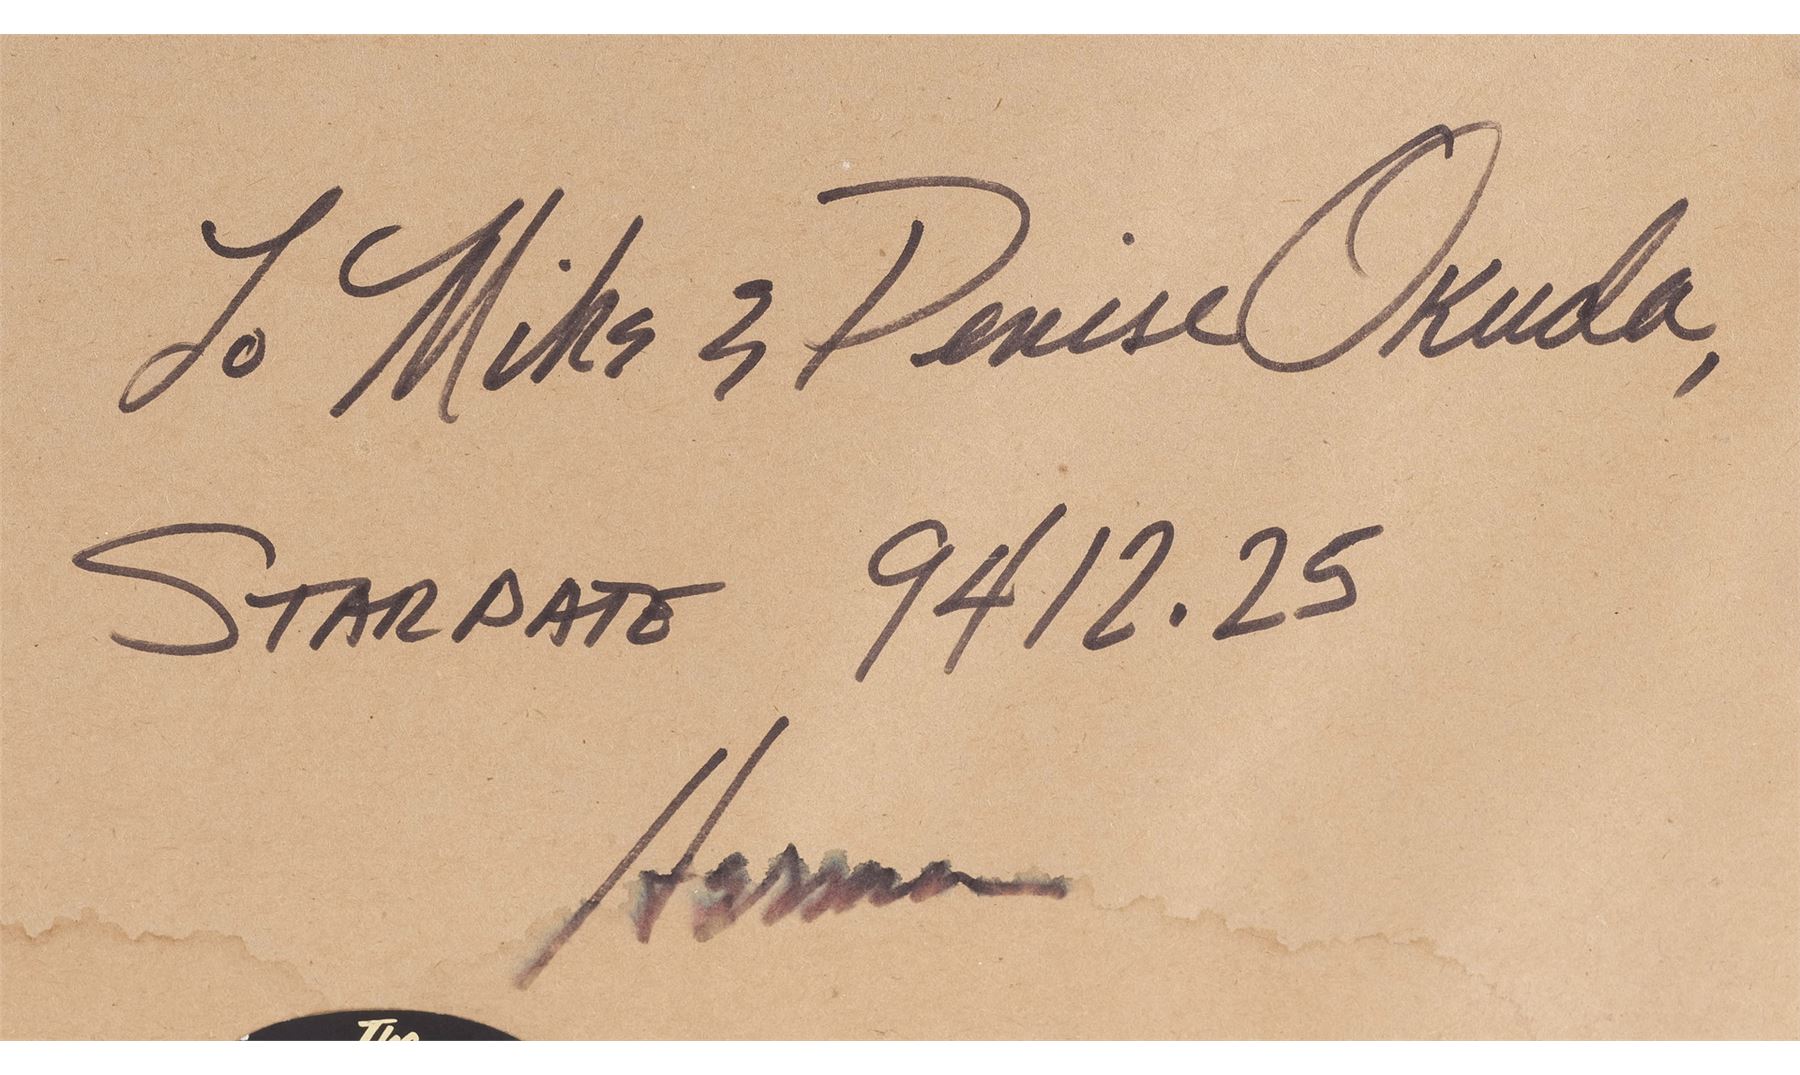 To Mike & Denise Okuda,
STARDATE 9412.25
Herman
The